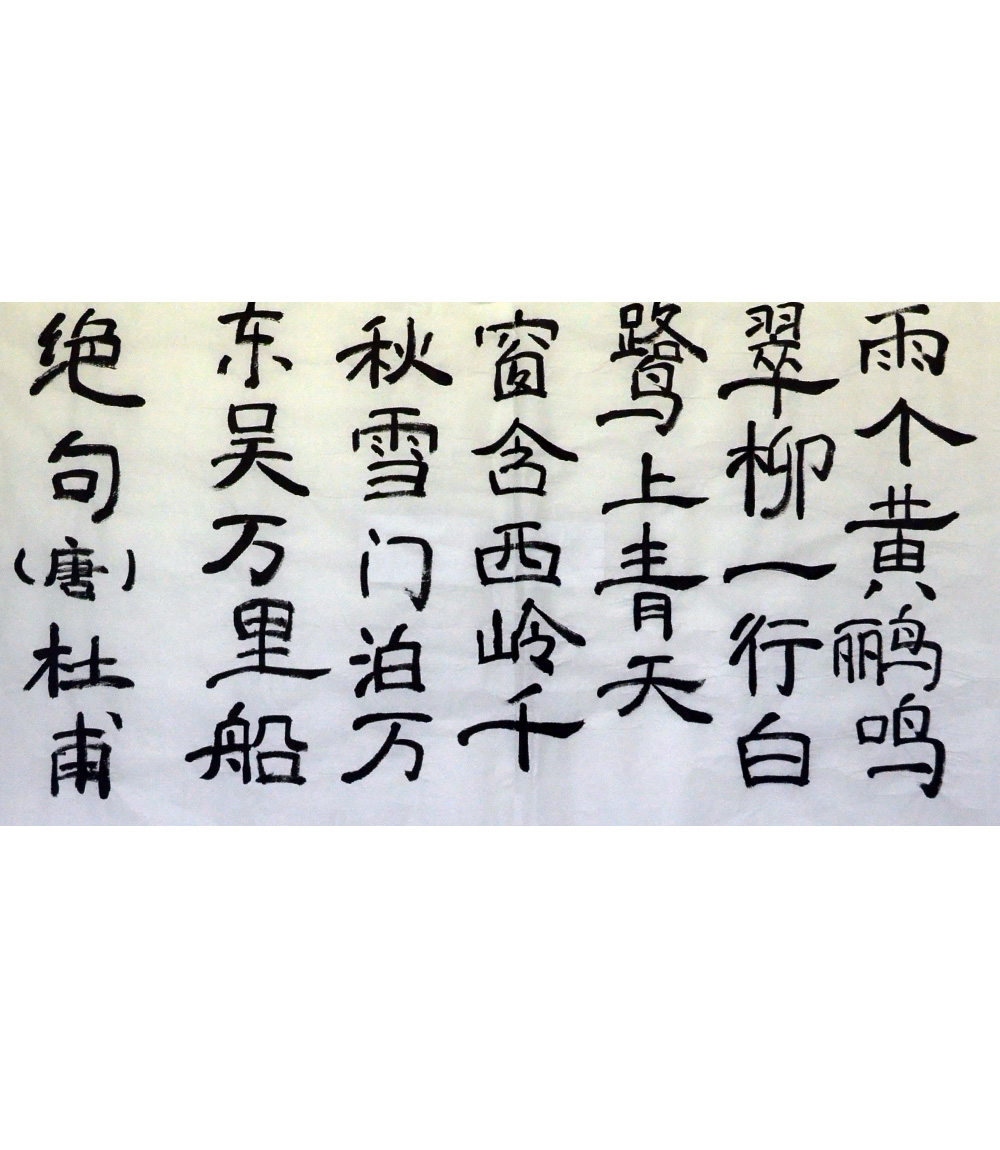 雨个黄鹂鸣
翠柳一行白
鹭上青天
窗含西岭千
秋雪门泊万
东吴万里船
绝句(唐)杜甫